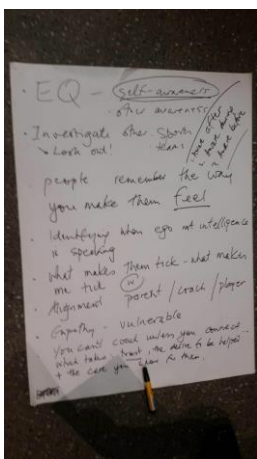 · EQ - self-awareness
· other awareness
· Investigate other sports
→ Look out! · teams
1. have after
2. have during
3. have before
people remember the way
you make them feel
· Identifying when ego not intelligence
is speaking
· What makes them tick - what makes
me tick
· Alignment parent / coach / player
· Empathy - vulnerable
· You can't coach unless you connect -
what takes trust, the desire to be helped
+ the care you have for them.